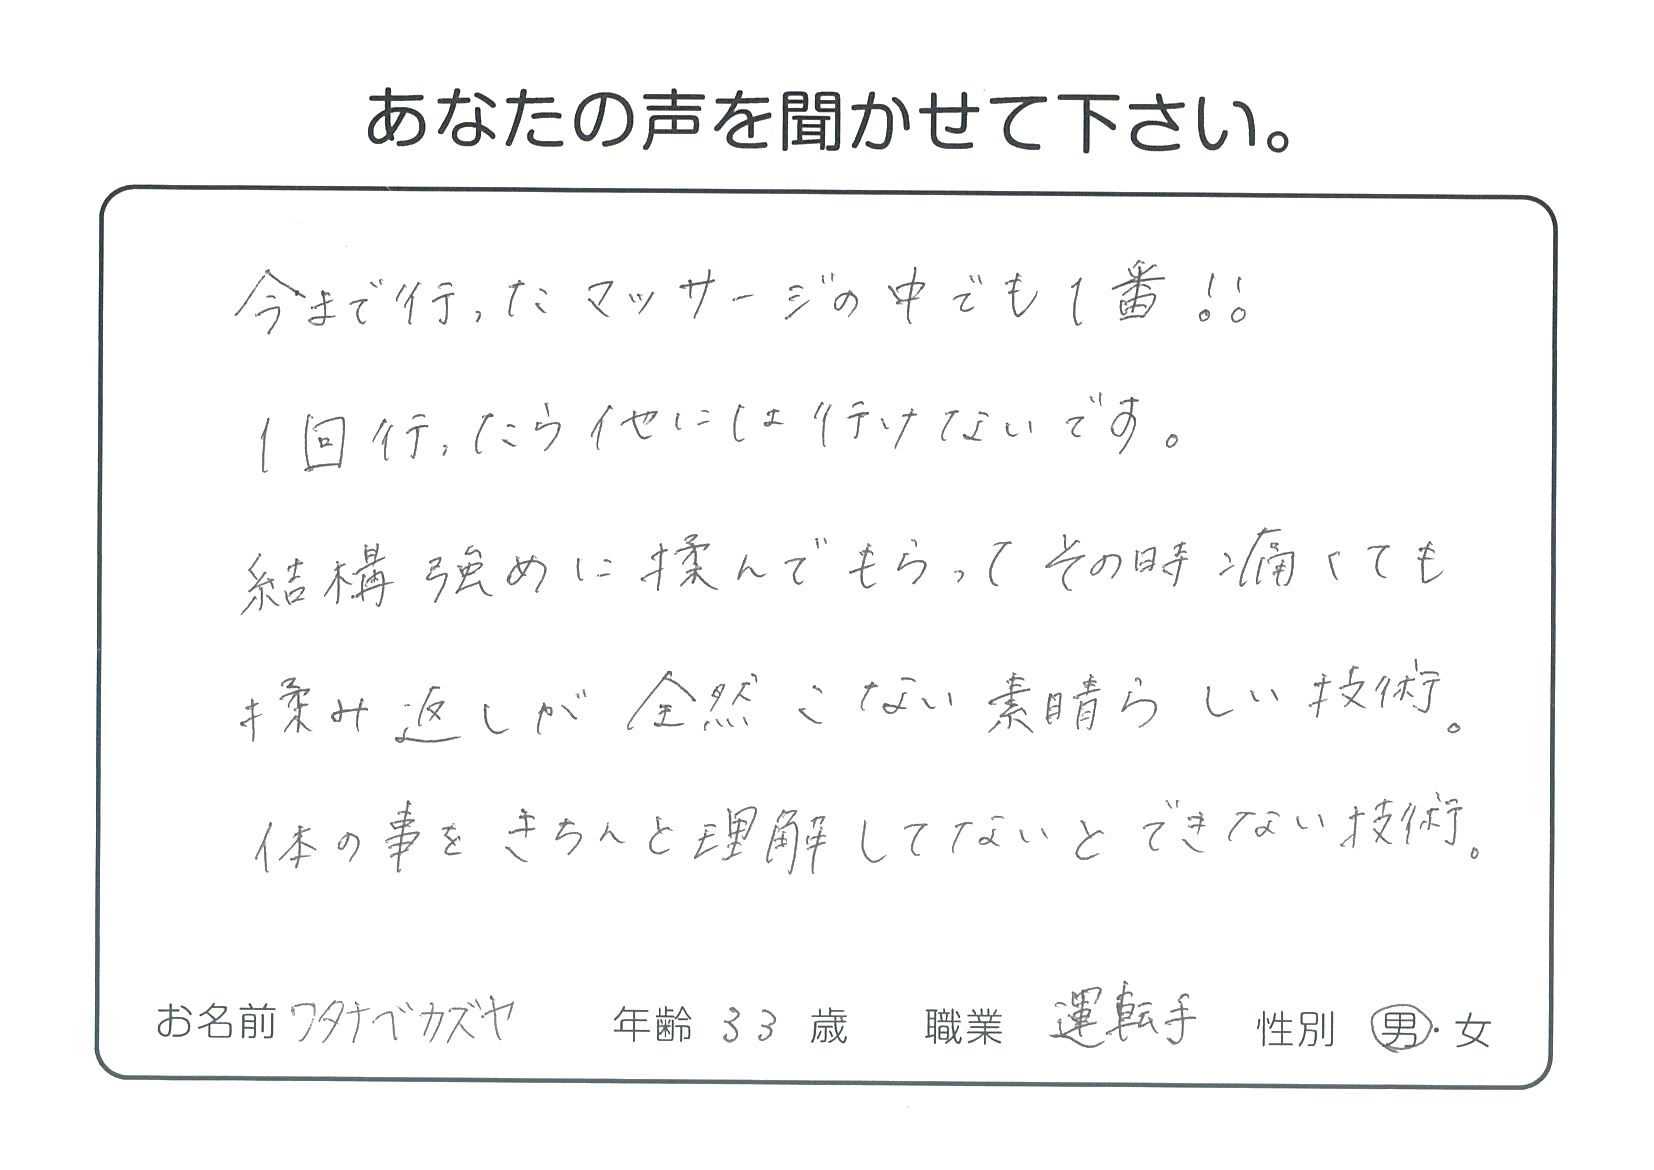 あなたの声を聞かせて下さい。
今まで行ったマッサージの中でも1番!!
1回行ったら他には行けないです。
結構強めに揉んでもらってその時痛くても
揉み返しが全然こない素晴らしい技術。
体の事をきちんと理解してないとできない技術。
お名前 ワタナベカズヤ 年齢 33 歳 職業 運転手 性別 男・女